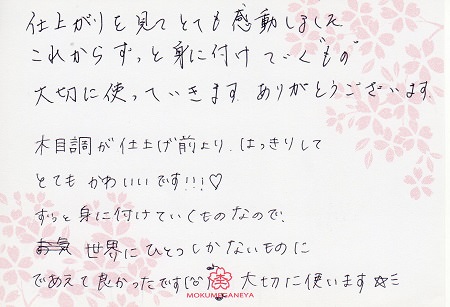 仕上がりを見てとても感動しました
これからずっと身に付けていくもの
大切に使っていきます ありがとうございます.
木目調が仕上げ前より、はっきりして
とてもかわいいです!!!♡
ずっと身に付けていくものなので、
世界にひとつしかないものに
であえて良かったです(^^)♪ 大切に使います☆ミ
MOKUMEGANEYA